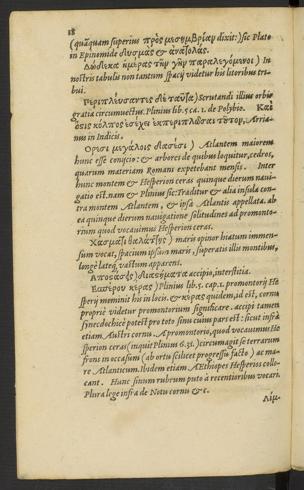 18
(quãquam superius πρὸς μεσημβρίαν dixit:) sic Plato
in Epinomide δυσμὰς & ἀνατολάς.
Δώδεκα ἡμέρας τῶν γῆν παραλεγόμενοι) In
nostris tabulis non tantum spacij videtur his litoribus tri-
bui.
Περιπλεύσαντες διὲ ταῦτα) Scrutandi illius orbis
gratia circumvectus. Plinius lib. 5. ca. 1. de Polybio. Καὶ
ὅσις κόλπος ἐσέχει ἐκπεριπλῶσαι τοῦτον, Arria-
nus in Indicis.
Ορεσι μεγάλοις δασέσι) Atlantem maiorem
hunc esse conijcio: & arbores de quibus loquitur, cedros,
quarum materiam Romani expetebant mensis. Inter
hunc montem & Hesperion ceras quinque dierum navi-
gatio est. nam & Plinius sic: Traditur & alia insula con-
tra montem Atlantem, & ipsa Atlantis appellata. ab
ea quinque dierum navigatione solitudines ad promonto-
rium quod vocavimus Hesperion ceras.
Χάσματι θαλάττης) maris opinor hiatum immen-
sum vocat, spacium ipsum maris, superatis illis montibus,
longè latéq; vastum apparent.
Αποστάσεις) διαστήματα accipio, interstitia.
Εσπέρου κέρας) Plinius lib. 5. cap. 1. promontorij He
sperij meminit his in locis. & κέρας quidem, id est, cornu
propriè videtur promontorium significare. accipi tamen
synecdochicè potest pro toto sinu cuius pars est: sicut infrà
etiam, Austri cornu. A promontorio, quod vocavimus He
sperion ceras (inquit Plinius 6. 31.) circumagit se terrarum
frons in occasum (ab ortu scilicet progressu facto) ac ma-
re Atlanticum. Ibidem etiam Æthiopes Hesperios collo-
cant. Hunc sinum rubrum puto à recentioribus vocari.
Plura lege infrà de Notu cornu &c.
Λίμ-